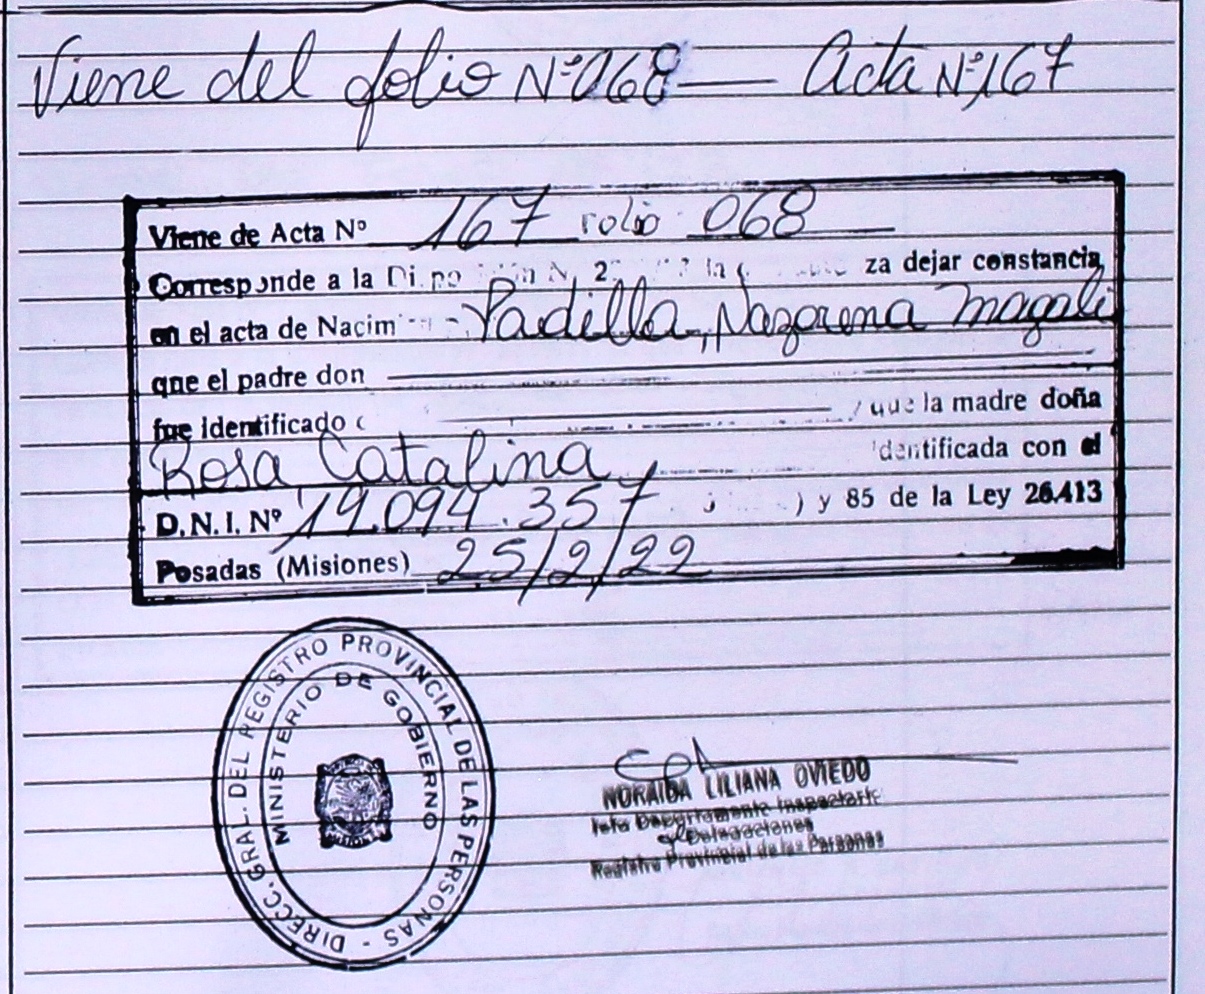 Viene del folio Nº 068 — Acta Nº 167
Viene de Acta Nº 167 folio 068
Corresponde a la za dejar constancia
en el acta de Nacim Padilla, Nazarena Magali
que el padre don
fue identificado que la madre doña
Rosa Catalina, identificada con el
D.N.I. Nº 19.094.357 ) y 85 de la Ley 26.413
Posadas (Misiones) 25/2/22
DIRECC. GRAL. DEL REGISTRO PROVINCIAL DE LAS PERSONAS -
MINISTERIO DE GOBIERNO
NORAIDA LILIANA OVIEDO
Jefa Departamento Inspectoría
y Delegaciones
Registro Provincial de las Personas